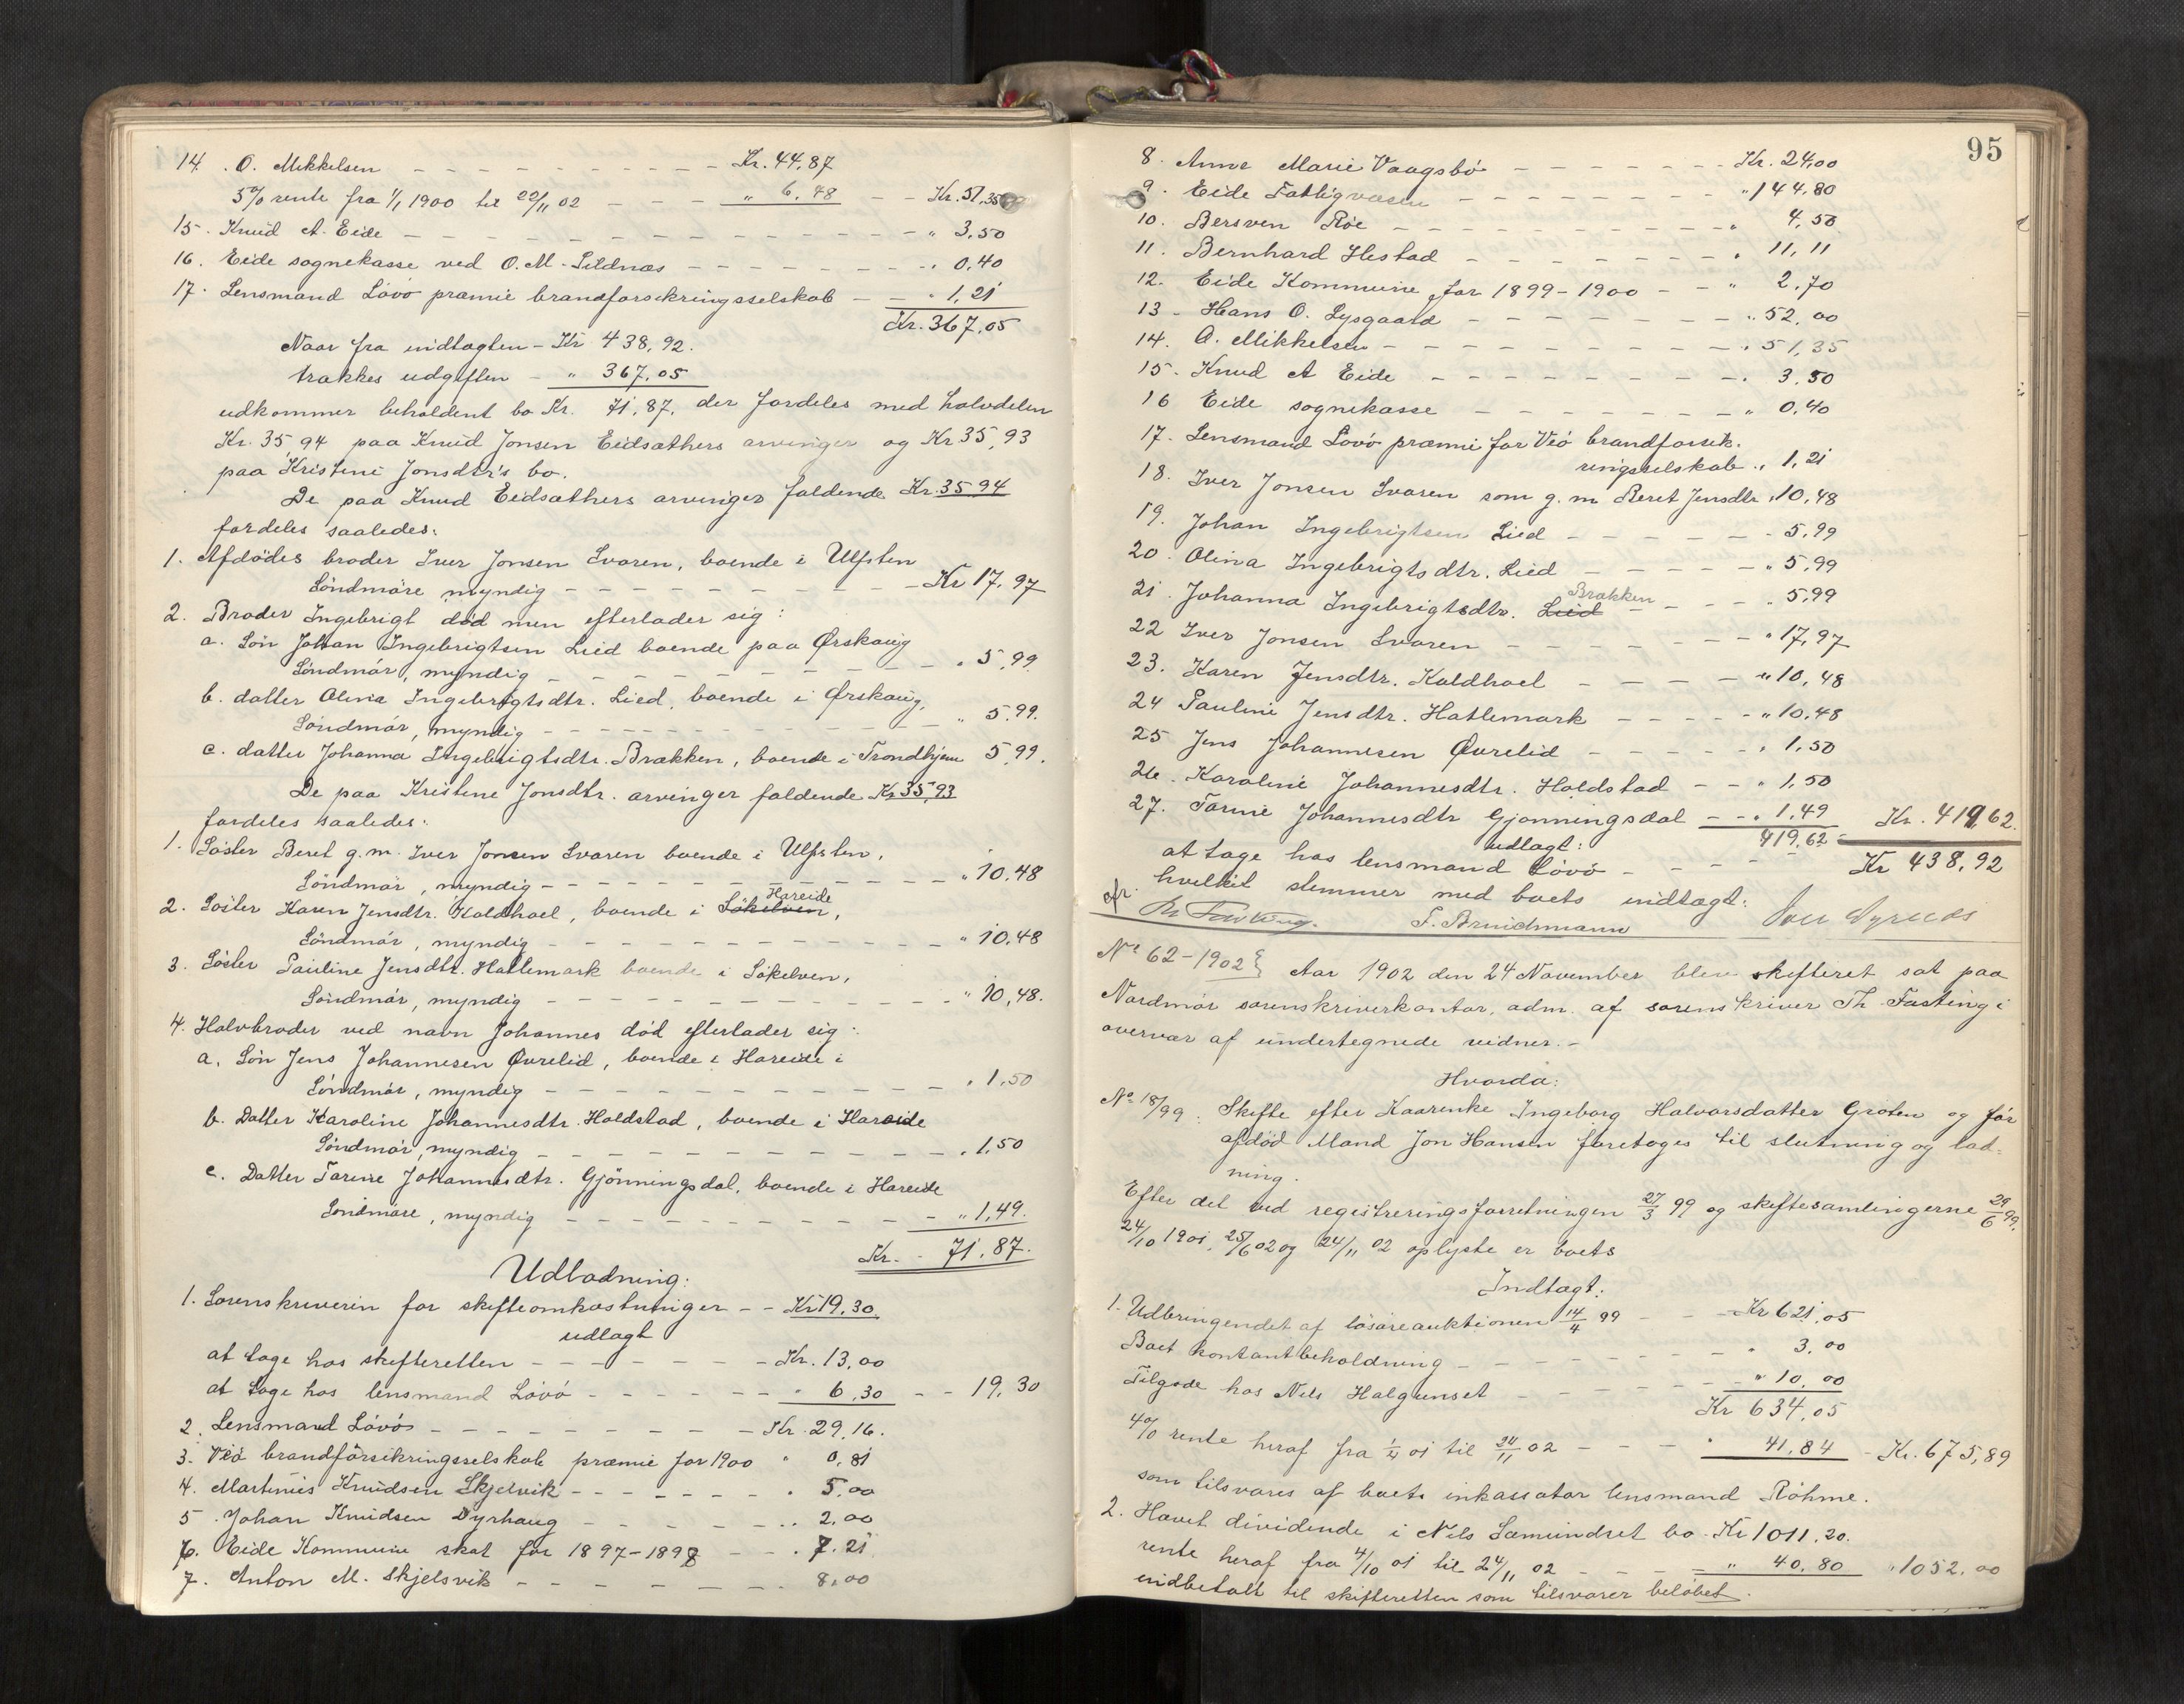 14. O. Mikkelsen - - - - Kr. 44,87
5% rente fra 1/1 1900 til 22/11 02 - - - " 6,48 - - Kr. 51,35
15. Knud A. Eide - - - - " 3,50
16. Eide sognekasse ved O. M. Lildnæs - - - - " 0,40
17. Lensmand Lövö præmie brandforsikringsselskab - - " 1,21
Kr. 367,05
Naar fra indtægten - Kr 438,92.
trækkes udgiften - " 367,05
udkommer beholdent bo Kr. 71,87, der fordeles med halvdelen
Kr. 35,94 paa Knud Jonsen Eidsæthers arvinger og Kr 35,93
paa Kristine Jonsdtr's bo.
De paa Knud Eidsæthers arvinger faldende Kr. 35,94
fordeles saaledes:
1. Afdödes broder Iver Jonsen Svoren, boende i Ulfsten
Söndmöre myndig - - - - Kr 17,97
2. Broder Ingebrigt död men efterlader sig:
a. Sön Johan Ingebrigtsen Lied boende paa Ørskaug
Söndmör, myndig - - - - " 5,99
b. datter Olina Ingebrigtsdtr. Lied, boende i Ørskaug,
Söndmör, myndig - - - - " 5,99.
c. datter Johanna Ingebrigtsdtr. Brækken, boende i Trondhjem 5,99.
De paa Kristine Jonsdtr. arvinger faldende Kr 35,93
fordeles saaledes:
1. Söster Beret g.m. Iver Jonsen Svoren boende i Ulfsten,
Söndmör, myndig - - - - " 10,48
Hareide
2. Söster Karen Jensdtr. Koldhoel, boende i Sökelven,
Söndmör, myndig - - - - " 10,48
3. Söster Pauline Jensdtr. Hatlemark boende i Sökelven,
Söndmör, myndig - - - - " 10,48.
4. Halvbroder ved navn Johannes död efterlader sig:
a. Sön Jens Johannesen Øvrelid, boende i Hareide i
Söndmör, myndig - - - - " 1,50
b. Datter Karoline Johannesdtr. Holdstad, boende i Hareide
Söndmör, myndig - - - - " 1,50
c. Datter Tarine Johannesdtr. Gjönningsdal, boende i Hareide
Söndmöre, myndig - - - - " 1,49.
Kr. - 71,87.
Udlodning:
1. Sorenskriverin for skifteomkostninger - - Kr 19,30
udlagt
at tage hos skifteretten - - - - Kr. 13,00
at tage hos lensmand Lövö - - - - " 6,30 - - 19,30
2. Lensmand Lövö - - - - Kr. 29,16.
3. Veö brandforsikringsselskab præmie for 1900 " 0,81
4. Martinus Knudsen Skjelvik - - - - " 5,00
5. Johan Knudsen Dyrhaug - - - - " 2,00
6. Eide Kommune skat for 1897-1898 - - " 7,21
7. Anton M. Skjelsvik - - - - 8,00
95
8. Anne Marie Vaagsbö - - - - Kr. 24,00
9. Eide Fattigvæsen - - - - " 144,80
10. Bersven Röe - - - - " 4,50
11. Bernhard Hestad - - - - " 11,11
12. Eide Kommune for 1899-1900 - - " 2,70
13. Hans O. Lysgaard - - - - " 52,00
14. O. Mikkelsen - - - - " 51,35
15. Knud A Eide - - - - " 3,50
16 Eide sognekasse - - - - " 0,40
17. Lensmand Lövö præmie for Veö brandforsik-
ringsselskab " 1,21
18. Iver Jonsen Svoren som g. m Beret Jensdtr " 10,48
19. Johan Ingebrigtsen Lied - - - - 5,99
20. Olina Ingebrigtsdtr. Lied - - - - " 5,99
Brækken
21. Johanna Ingebrigtsdtr. Lied - - - - " 5,99
22 Iver Jonsen Svoren - - - - " 17,97
23. Karen Jensdtr. Koldhoel - - - - " 10,48
24 Pauline Jensdtr. Hatlemark - - - - " 10,48
25 Jens Johannesen Øvrelid - - - - " 1,50
26. Karoline Johannesdtr. Holdstad - - " 1,50
27. Tarine Johannesdtr Gjönningsdal - - " 1,49 Kr. 419,62.
udlagt: 419,62
at tage hos lensmand Lövö - - - - Kr 438,92
hvilket stemmer med boets indtægt:
cfr. Th Fasting. F. Bruichmann
No 62-1902 } Aar 1902 den 24 November blev skifteret sat paa
Nordmör sorenskriverkontor, adm. af sorenskriver Th. Fasting i
overvær af undertegnede vidner. -
Hvorda:
No 18/99. Skifte efter Kaarenke Ingeborg Halvorsdatter Gröten og för
afdöd Mand Jon Hansen foretoges til slutning og lod-
ning.
Efter det ved registreringsforretningen 27/3 99 og skiftesamlingerne 29/6 99,
24/10 1901, 25/6 02 og 24/11 02 oplyste er boets
Indtægt:
1. Udbringendet af lösöreauktionen 14/4 99 - - Kr 621,05
Boet kontantbeholdning - - - - " 3,00
Tilgode hos Nils Halgunset - - - - " 10,00
Kr 634,05
4% rente heraf fra 1/4 01 til 24/11 02 - - - " 41,84 - Kr. 675,89
som tilsvares af boets inkassator lensmand Röhme.
2. Havet dividende i Nils Sæmundset bo - Kr 1011,20.
rente heraf fra 4/10 01 til 24/11 02 - - - " 40,80 " 1052,00
indbetalt til skifteretten som tilsvarer belöbet.